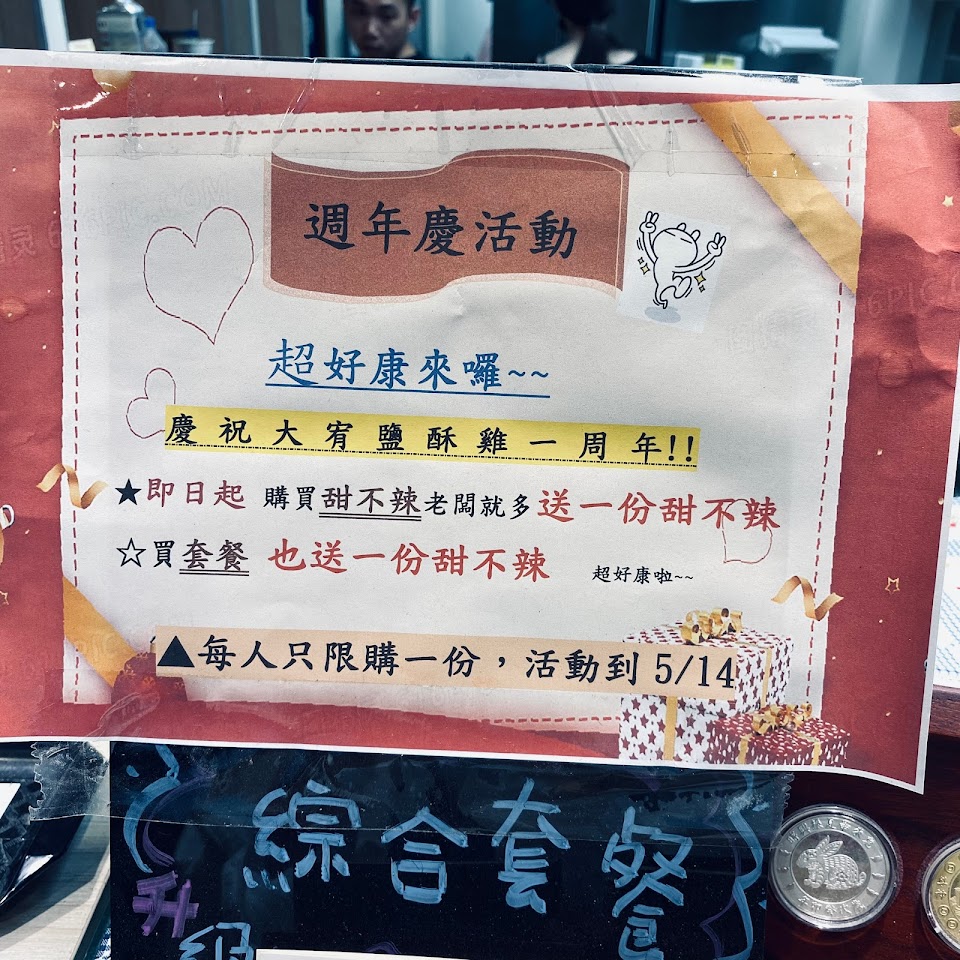 週年慶活動
超好康來囉~~
慶祝大宥鹽酥雞一周年!!
★即日起 購買甜不辣老闆就多送一份甜不辣
☆買套餐 也送一份甜不辣 超好康啦~~
▲每人只限購一份，活動到 5/14
綜合套餐
升級